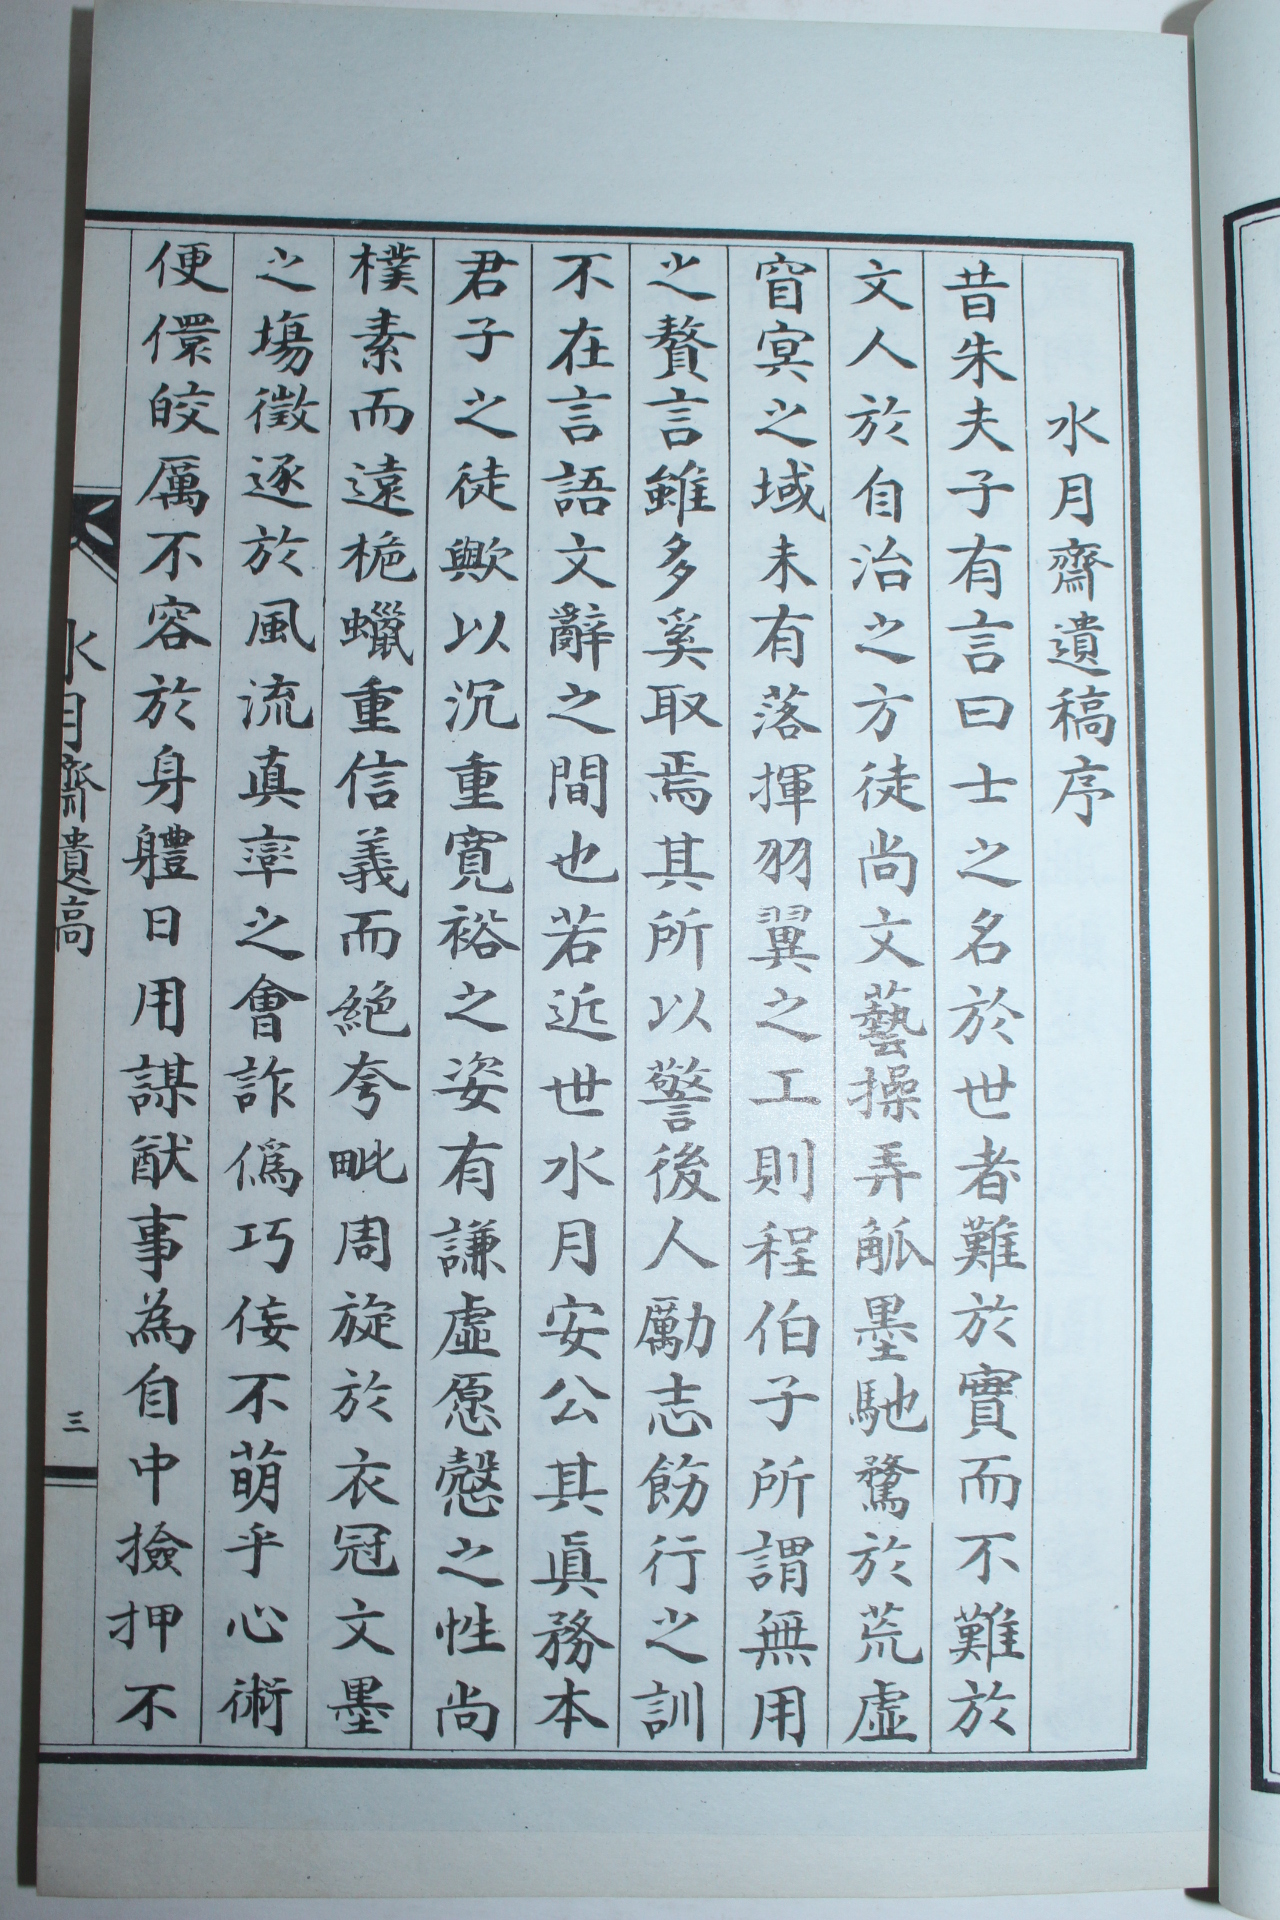 水月齋遺稿序
昔朱夫子有言曰士之名於世者難於實而不難於
文人於自治之方徒尚文藝操弄觚墨馳騖於荒虛
窅冥之域未有落揮羽翼之工則程伯子所謂無用
之贅言雖多奚取焉其所以警後人勵志飭行之訓
不在言語文辭之間也若近世水月安公其眞務本
君子之徒歟以沉重寬裕之姿有謙虛愿慤之性尚
樸素而遠梔蠟重信義而絶夸毗周旋於衣冠文墨
之場徵逐於風流真率之會詐僞巧倿不萌乎心術
便儇皎厲不容於身軆日用謀猷事為自中撿押不
水月齋遺稿
三